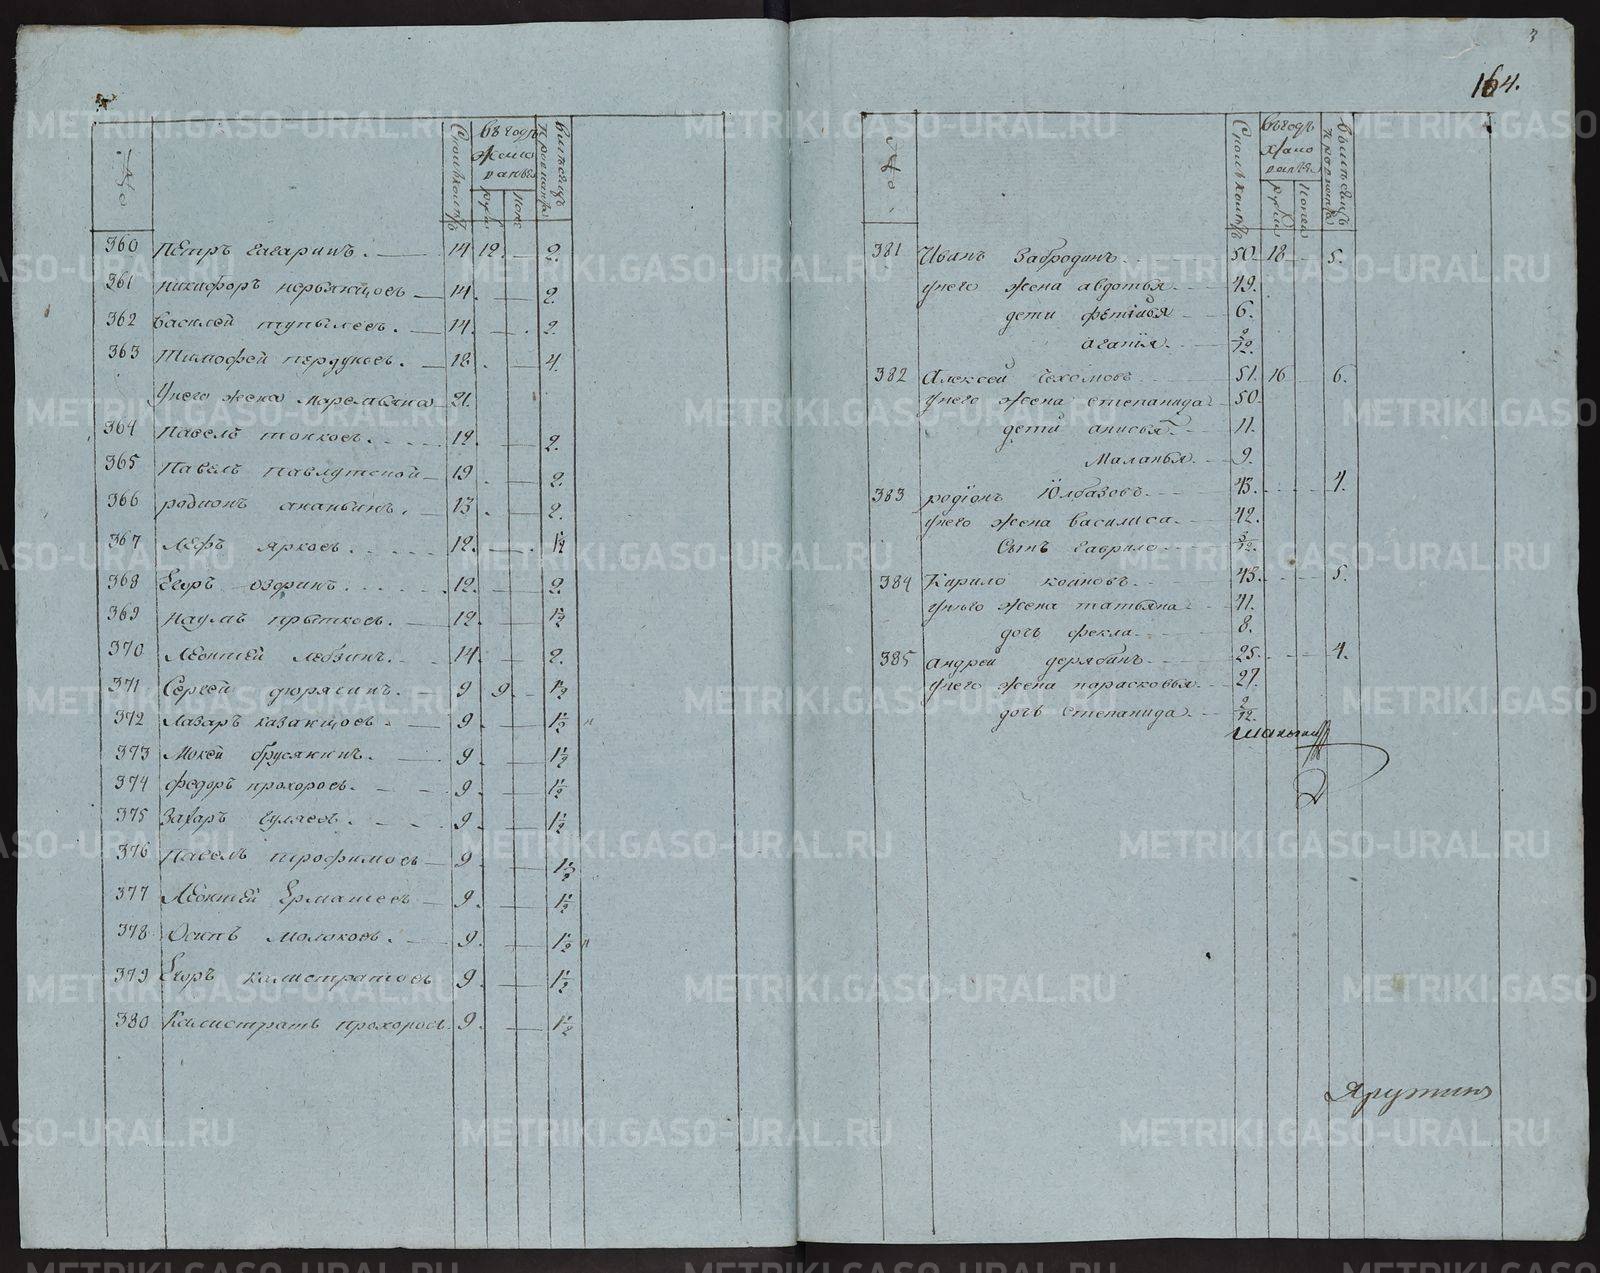 №
Сколькихъ
Въ годъ
жало
ванья
рубли
копе
Въ месяцъ
провианта
360 Петръ гагаринъ. 14 12. 2.
361 никифоръ 14. 2.
362 василей тупылевъ. 14. 2.
363 Тимофей пердуковъ. 18. 4.
Унего жена маремьяна 21.
364 Павелъ толковъ. 12. 2.
365 Павелъ 19. 2.
366 родионъ ананьинъ. 13. 2.
367 Лефъ ярковъ. 12. 1½
368 Егоръ озфинъ. 12. 2.
369 Наумъ прытковъ. 12. 1½
370 Леонтей лебзинъ. 14. 2.
371 Сергей дюрягинъ. 9 9. 1½
372 Лазаръ казанцовъ. 9. 1½
373 Мокей брусянинъ. 9. 1½
374 федоръ прохоровъ. 9. 1½
375 Захаръ гуляевъ. 9. 1½
376 Павелъ трофимовъ 9. 1½
377 Леонтей Ермашевъ 9. 1½
378 Осипъ молоковъ. 9. 1½
379 Егоръ калистратовъ 9. 1½
380 Калистратъ прохоровъ. 9. 1½
3
164.
№
Сколькихъ
Въ годъ
жало
ванья
рубли
копеи
Въ месяцъ
провианта
381 Иванъ Забродинъ. 50. 18 5.
унего жена авдотья 49.
дети фетинья 6.
аганія. 2/12.
382 Алексей Чехомовъ 51. 16 6.
унего жена степанида 50.
дети анисья 11.
Маланья. 9.
383 родіонъ Юлбазовъ. 43. 4.
унего жена василиса. 42.
сынъ гаврило. 3/12.
384 Кирило коиновъ. 43. 5.
унего жена татьяна 41.
дочь фекла. 8.
385 андрей дерябинъ. 25. 4.
унего жена парасковья. 27.
дочь степанида. 2/12.
METRIKI.GASO-URAL.RU